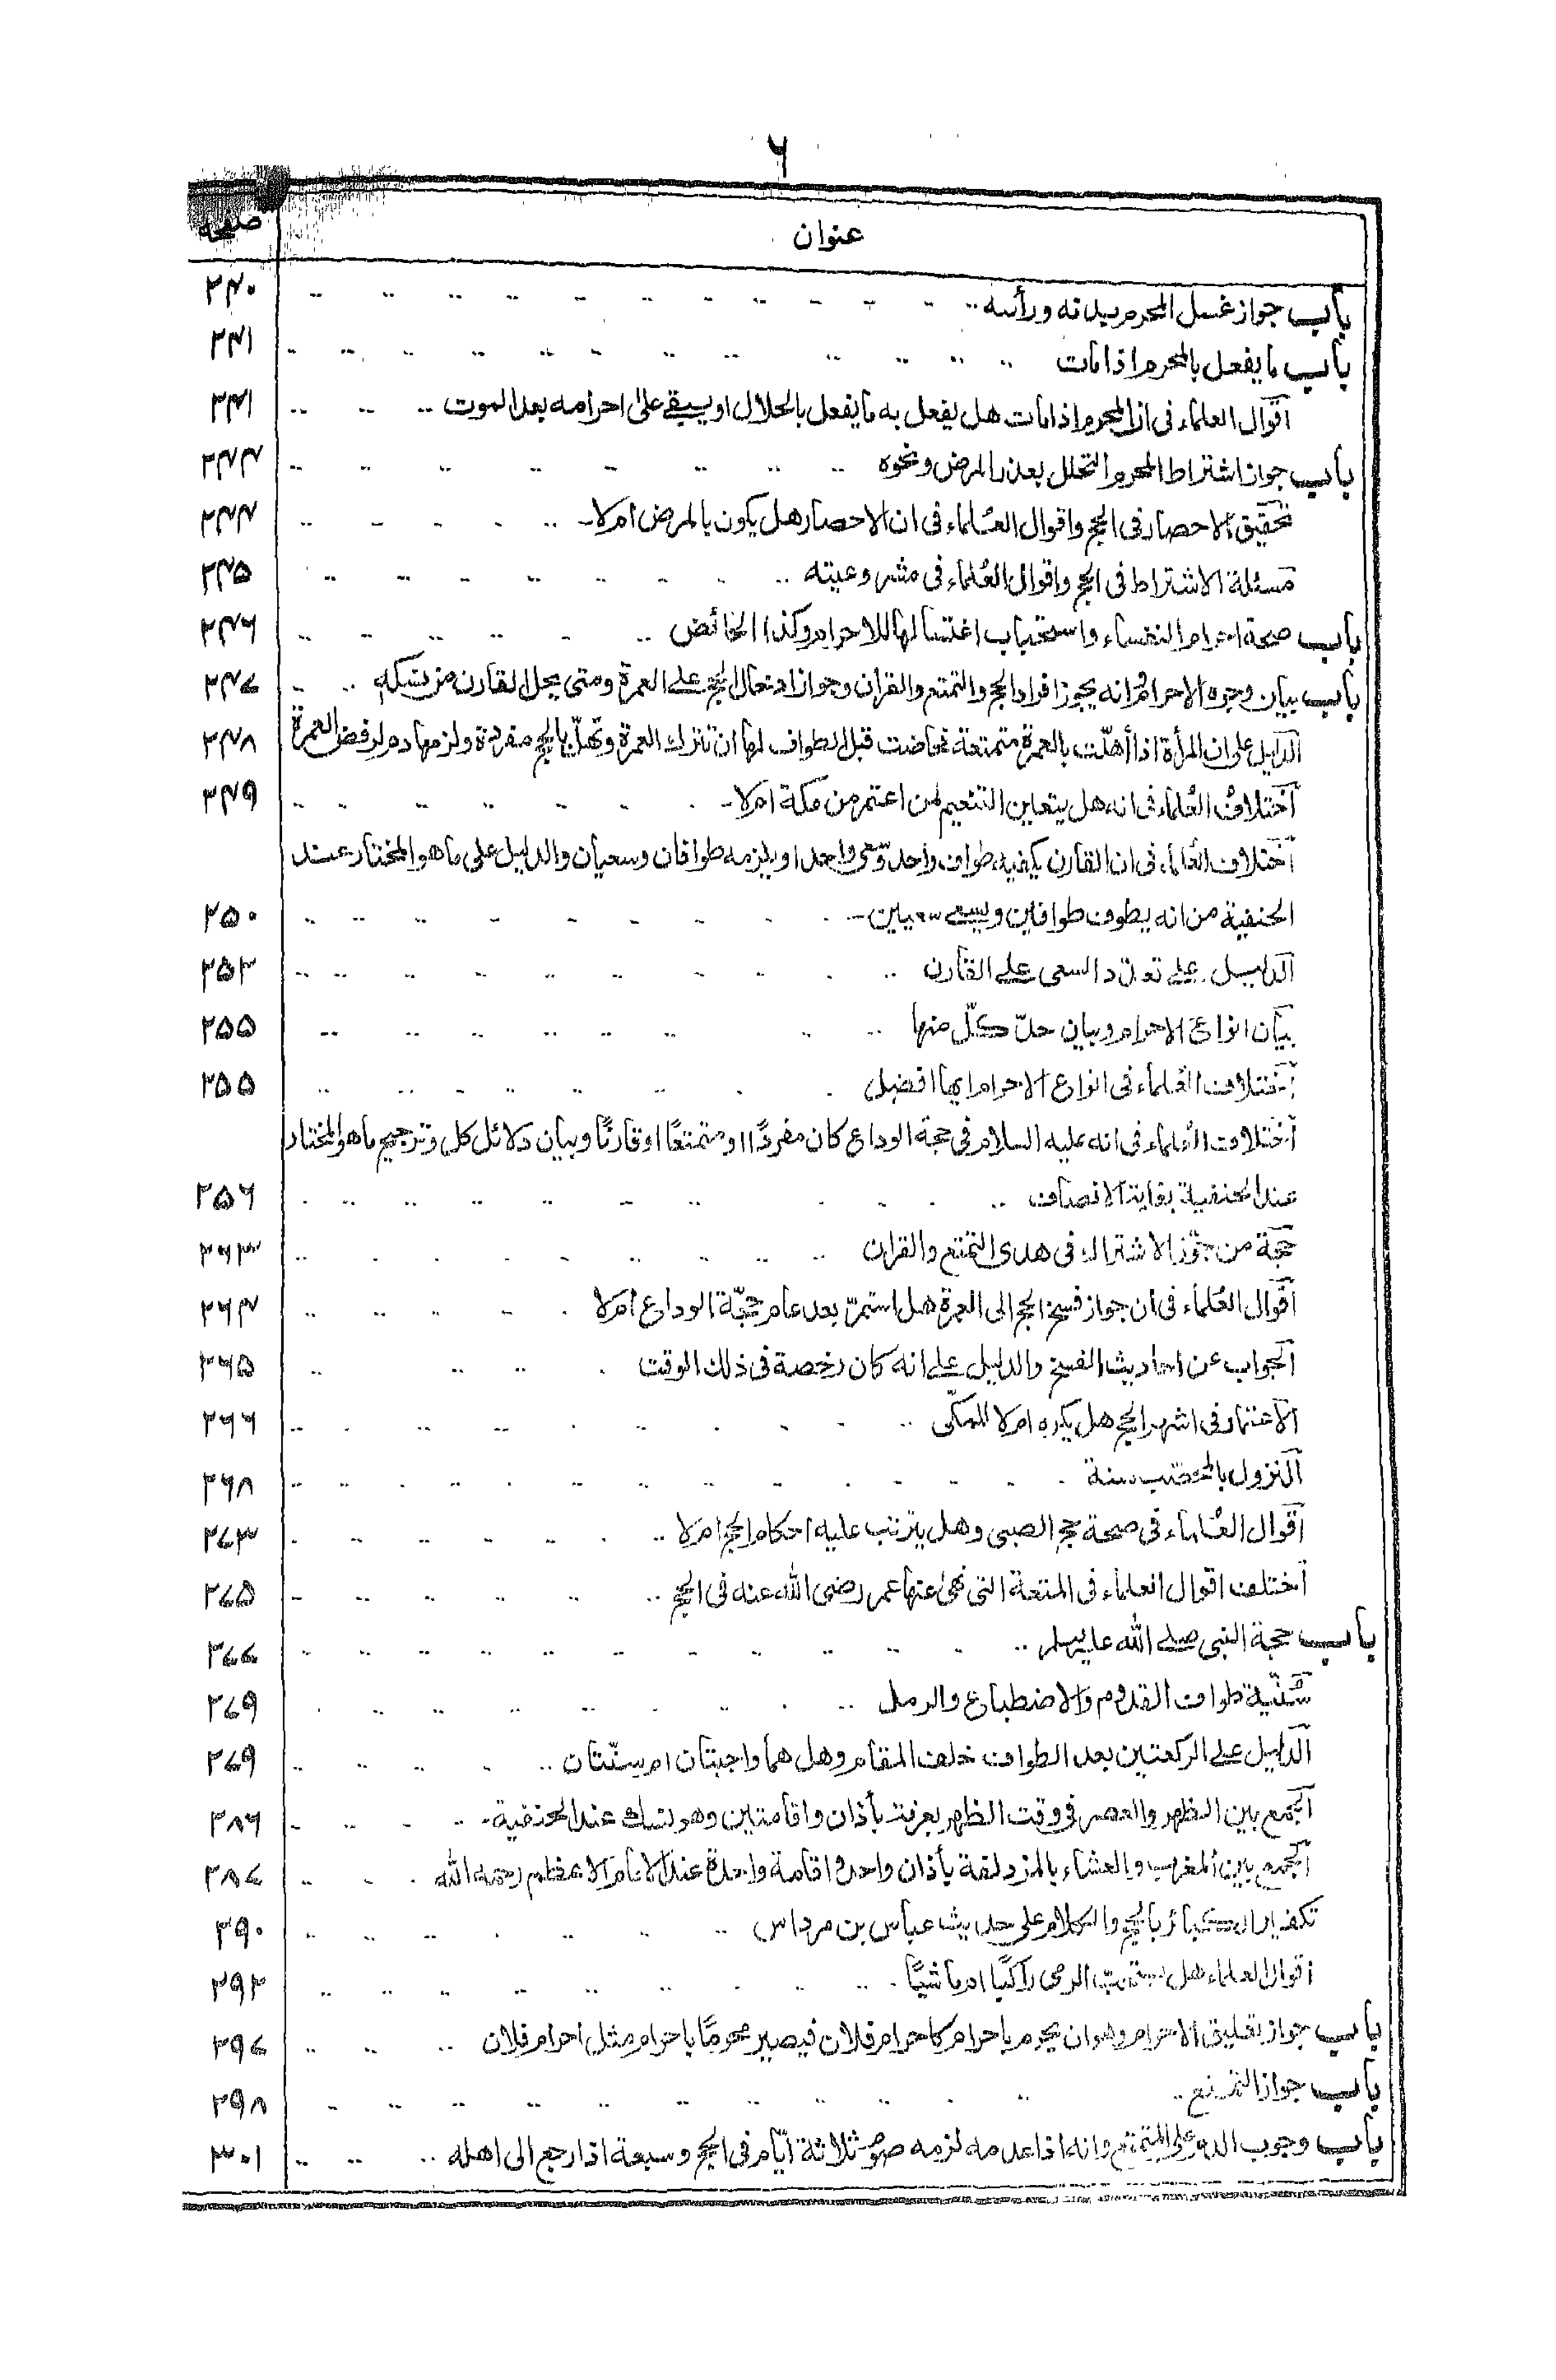 ۶
عنوان صفحه
باب جواز غسل المحرم بدنه ورأسه ۲۴۰
باب ما يفعل بالمحرم اذا مات ۲۴۱
اقوال العلماء فى ان المحرم اذا مات هل يفعل به ما يفعل بالحلال او يبقى على احرامه بعد الموت ۲۴۱
باب جواز اشتراط المحرم التحلل بعذر المرض ونحوه ۲۴۴
تحقيق الاحصار فى الحج واقوال العلماء فى ان الاحصار هل يكون بالمرض ام لا ۲۴۴
مسئلة الاشتراط فى الحج واقوال العلماء فى مشروعيته ۲۴۵
باب صحة احرام النفساء واستحباب اغتسالها للاحرام وكذا الحائض ۲۴۶
باب بيان وجوه الاحرام وانه يجوز افراد الحج والتمتع والقران وجواز ادخال الحج على العمرة ومتى يحل القارن من نسكه ۲۴۷
الدليل على ان المرأة اذا أهلّت بالعمرة متمتعة فحاضت قبل الطواف لها ان تترك العمرة وتهلّ بالحج مفردة ولزمها دم لرفض العمرة ۲۴۸
اختلاف العلماء فى انه هل يتعين التنعيم لمن اعتمر من مكة ام لا ۲۴۹
اختلاف العلماء فى ان القارن يكفيه طواف واحد وسعى واحد او يلزمه طوافان وسعيان والدليل على ما هو المختار عند
الحنفية من انه يطوف طوافين ويسعى سعيين ۲۵۰
الدليل على تعدد السعى على القارن ۲۵۳
بيان انواع الاحرام وبيان حلّ كلّ منها ۲۵۵
اختلاف العلماء فى انواع الاحرام ايها افضل ۲۵۵
اختلاف العلماء فى انه عليه السلام فى حجة الوداع كان مفردًا او متمتعًا او قارنًا وبيان دلائل كل وترجيح ما هو المختار
عند الحنفية بغاية الانصاف ۲۵۶
حجة من جوّز الاشتراك فى هدى التمتع والقران ۲۶۳
اقوال العلماء فى ان جواز فسخ الحج الى العمرة هل استمرّ بعد عام حجّة الوداع ام لا ۲۶۴
الجواب عن احاديث الفسخ والدليل على انه كان رخصة فى ذلك الوقت ۲۶۵
الاعتمار فى اشهر الحج هل يكره ام لا للمكّى ۲۶۶
النزول بالمحصّب سنة ۲۶۸
اقوال العلماء فى صحة حج الصبى وهل يترتب عليه احكام الحج ام لا ۲۷۳
اختلف اقوال العلماء فى المتعة التى نهى عنها عمر رضى الله عنه فى الحج ۲۷۵
باب حجة النبى صلى الله عليه وسلم ۲۷۷
سُنّيّة طواف القدوم والاضطباع والرمل ۲۷۹
الدليل على الركعتين بعد الطواف خلف المقام وهل هما واجبتان ام سنّتان ۲۷۹
الجمع بين الظهر والعصر فى وقت الظهر بعرفة بأذان واقامتين وهو نسك عند الحنفية ۲۸۶
الجمع بين المغرب والعشاء بالمزدلفة بأذان واحد واقامة واحدة عند الامام الاعظم رحمه الله ۲۸۷
تكفير الكبائر بالحج والكلام على حديث عباس بن مرداس ۲۹۰
اقوال العلماء هل يستحبّ الرمى راكبًا ام ماشيًا ۲۹۳
باب جواز تعليق الاحرام وهو ان يحرم باحرام كاحرام فلان فيصير محرمًا باحرام مثل احرام فلان ۲۹۷
باب جواز التمتع ۲۹۸
باب وجوب الدم على المتمتع وانه اذا عدمه لزمه صوم ثلاثة ايّام فى الحج وسبعة اذا رجع الى اهله ۳۰۱